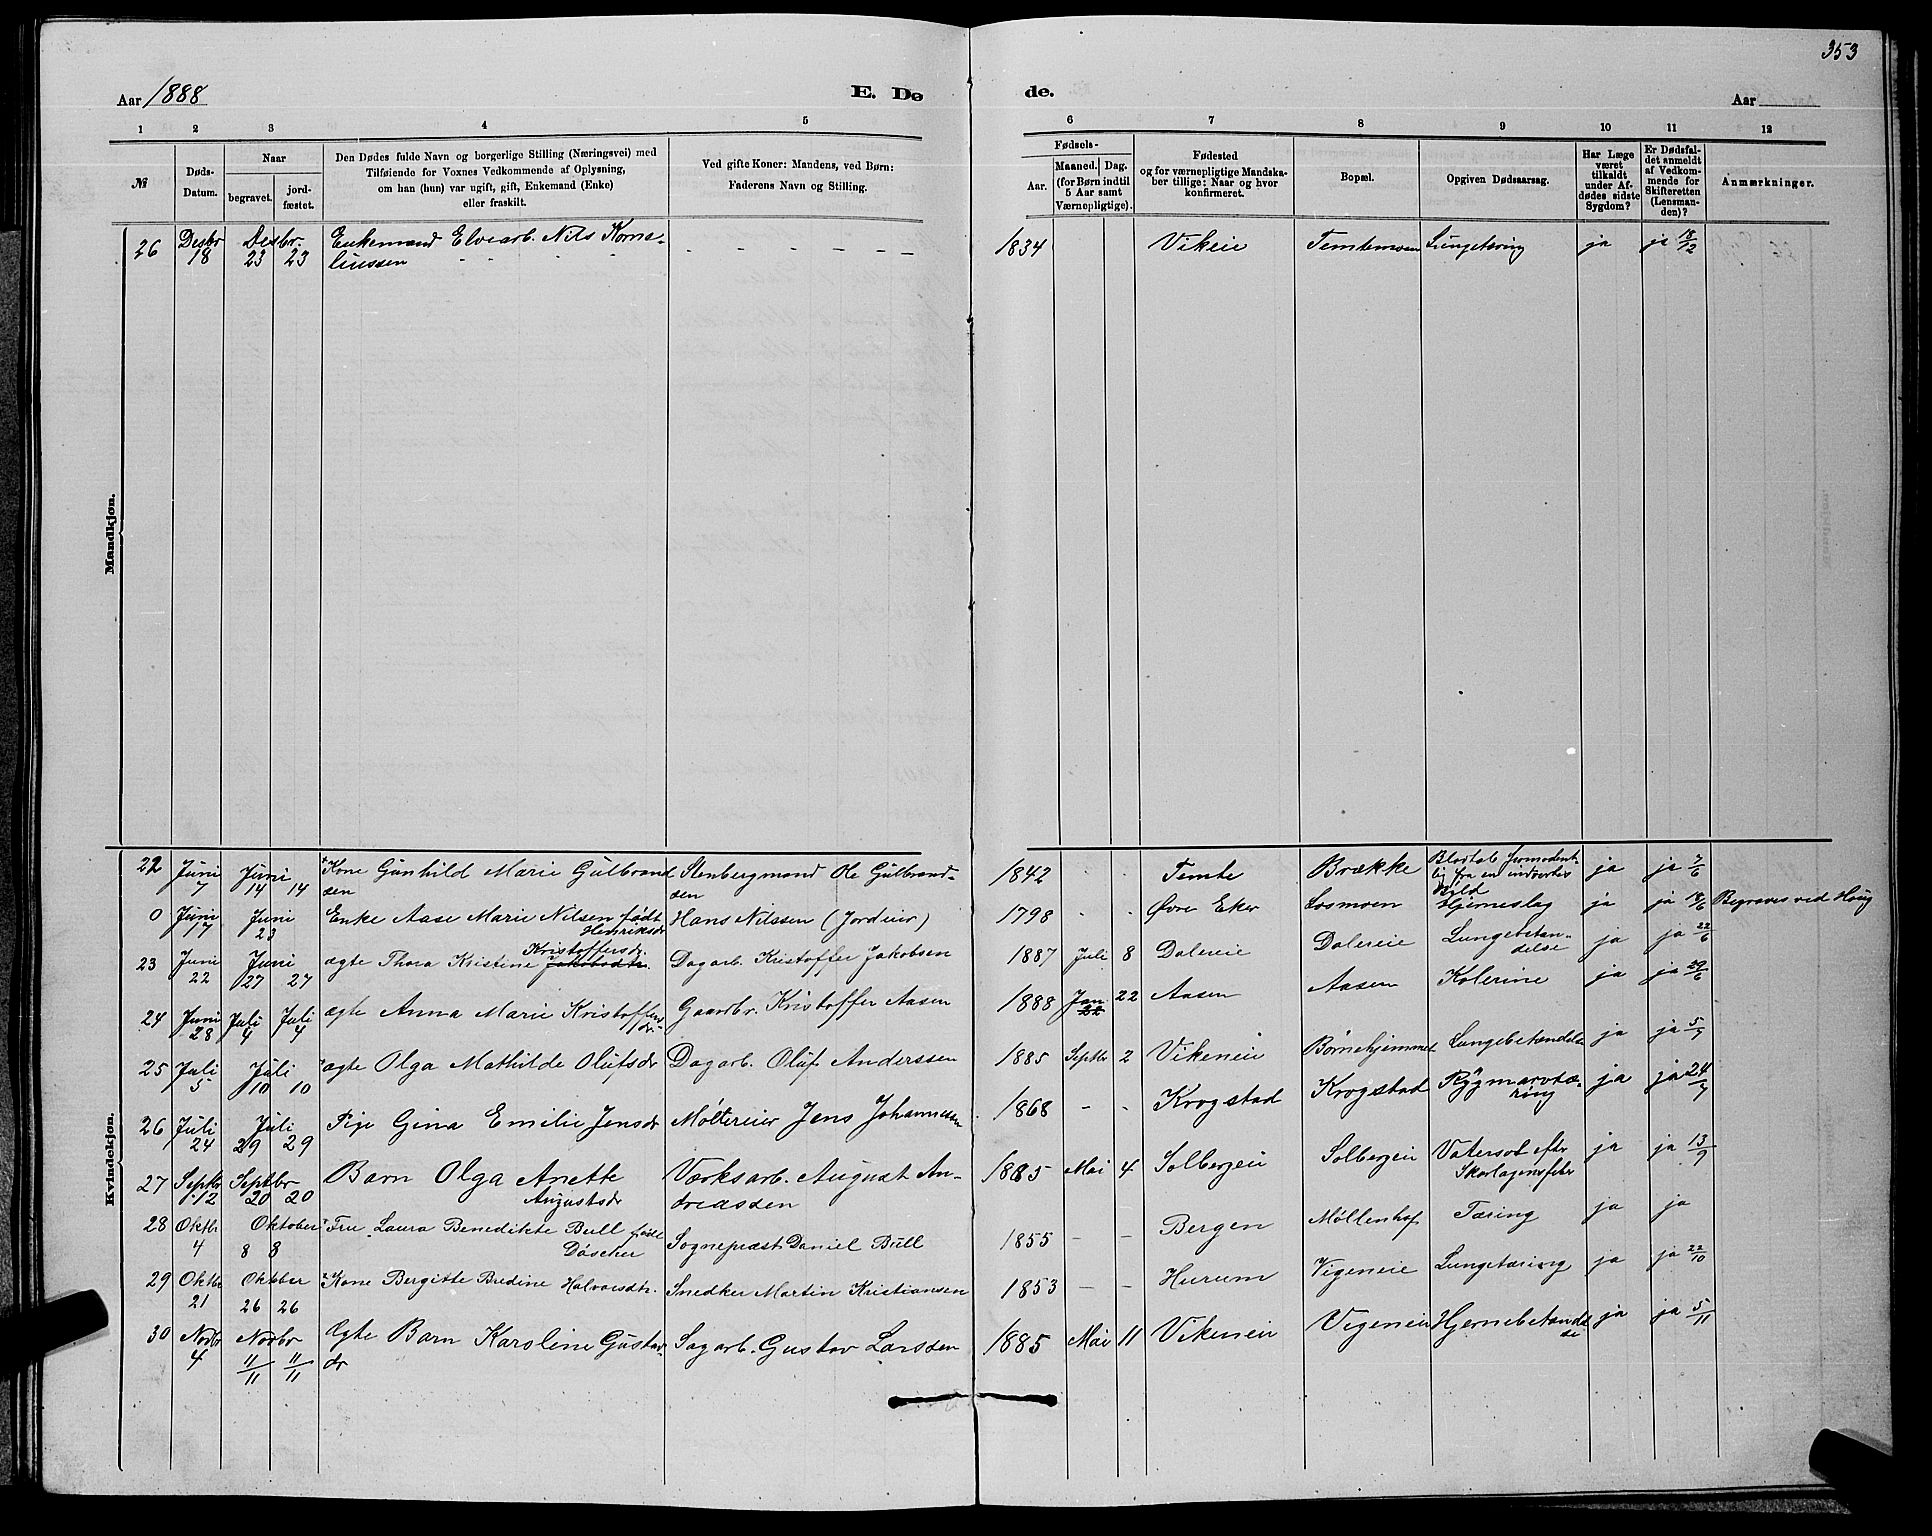 353
Aar 1888
E. Dø
de.
Aar
1 2 3 4 5
6 7 8 9 10 11 12
№
Døds-
Datum.
Naar
begravet.
jord-
fæstet.
Den Dødes fulde Navn og borgerlige Stilling (Næringsvei) med
Tilføiende for Voxnes Vedkommende af Oplysning,
om han (hun) var ugift, gift, Enkemand (Enke)
eller fraskilt.
Ved gifte Koner: Mandens, ved Børn:
Faderens Navn og Stilling.
Fødsels-
Aar.
Maaned. Dag.
(for Børn indtil
5 Aar samt
Værnepligtige).
Fødested
og for værnepligtige Mandska-
ber tillige: Naar og hvor
konfirmeret.
Bopæl.
Opgiven Dødsaarsag.
Har Læge
været
tilkaldt
under Af-
dødes sidste
Sygdom?
Er Dødsfal-
det anmeldt
af Vedkom-
mende for
Skifteretten
(Lensman-
den)?
Anmærkninger.
Mandkjøn.
26 Desbr Desbr. Enkemand Elvearb. Nils Korne- - - - - - - 1834 Vikeie Temtemoen Lungetæring ja ja 18/12
18 23 23 liussen - - - - -
Kvindekjøn.
22 Juni Juni Kone Gunhild Marie Gulbrand Stenbergmand Ole Gulbrand- 1842 Temte Brække Blodtab ja ja 7/6
7 14 14 sen sen lig fra en indvortes
Byld
0 Juni Juni Enke Aase Marie Nilsen født Hans Nilssen (Jordeier) 1798 Øvre Eker Losmoen Hjerneslag ja ja 18/6 Begraves ved Houg
17 23 Henriksdr
23 Juni Juni ægte Thora Kristine Kristoffersdr. Jakobsdtr. Dagarb. Kristoffer Jakobsen 1887 Juli 8 Dalereie Dalereie Lungebetæn- ja ja 22/6
22 27 27 delse
24 Juni Juli Juli ægte Anna Marie Kristoffers Gaardbr. Kristoffer Aasen 1888 Jan 22 Aasen Aasen Kolerine ja ja 29/6
28 4 4 dr. 22
25 Juli Juli ægte Olga Mathilde Olufsdr Dagarb. Oluf Anderssen 1885 Septbr 2 Vikeneie Børnehjemmet Lungebetændelse ja ja 5/7
5 10 10
26 Juli Juli Pige Gina Emilie Jensdr Jens Johannessen 1868 - - Krogstad Krogstad Rygmarvtæ- ja ja 24/7
24 29 29 ring
27 Septbr Septbr Barn Olga Anette Værksarb. August An- 1885 Mai 4 Solbergeie Solbergeie Vatersot efter ja ja 13/9
12 20 20 Augustsdr dreassen Skarlagensfeber
28 Oktbr Oktober Fru Laura Benedikte Bull født Sognepræst Daniel Bull 1855 - - Bergen Møllenhof Tæring ja ja
4 8 8 Döscher
29 Oktbr Oktober Kone Bergitte Bredine Halvorsdtr. Snedker Martin Kristiansen 1853 - - Hurum Vigeneie Lungetæring ja ja 22/10
21 26 26
30 Novbr Novbr Ægte Barn Karoline Gustav- Sagarb. Gustav Larssen 1885 Mai 11 Vikeneie Vigeneie Hjernebetændel- ja ja 5/11
4 11/11 11/11 dr se